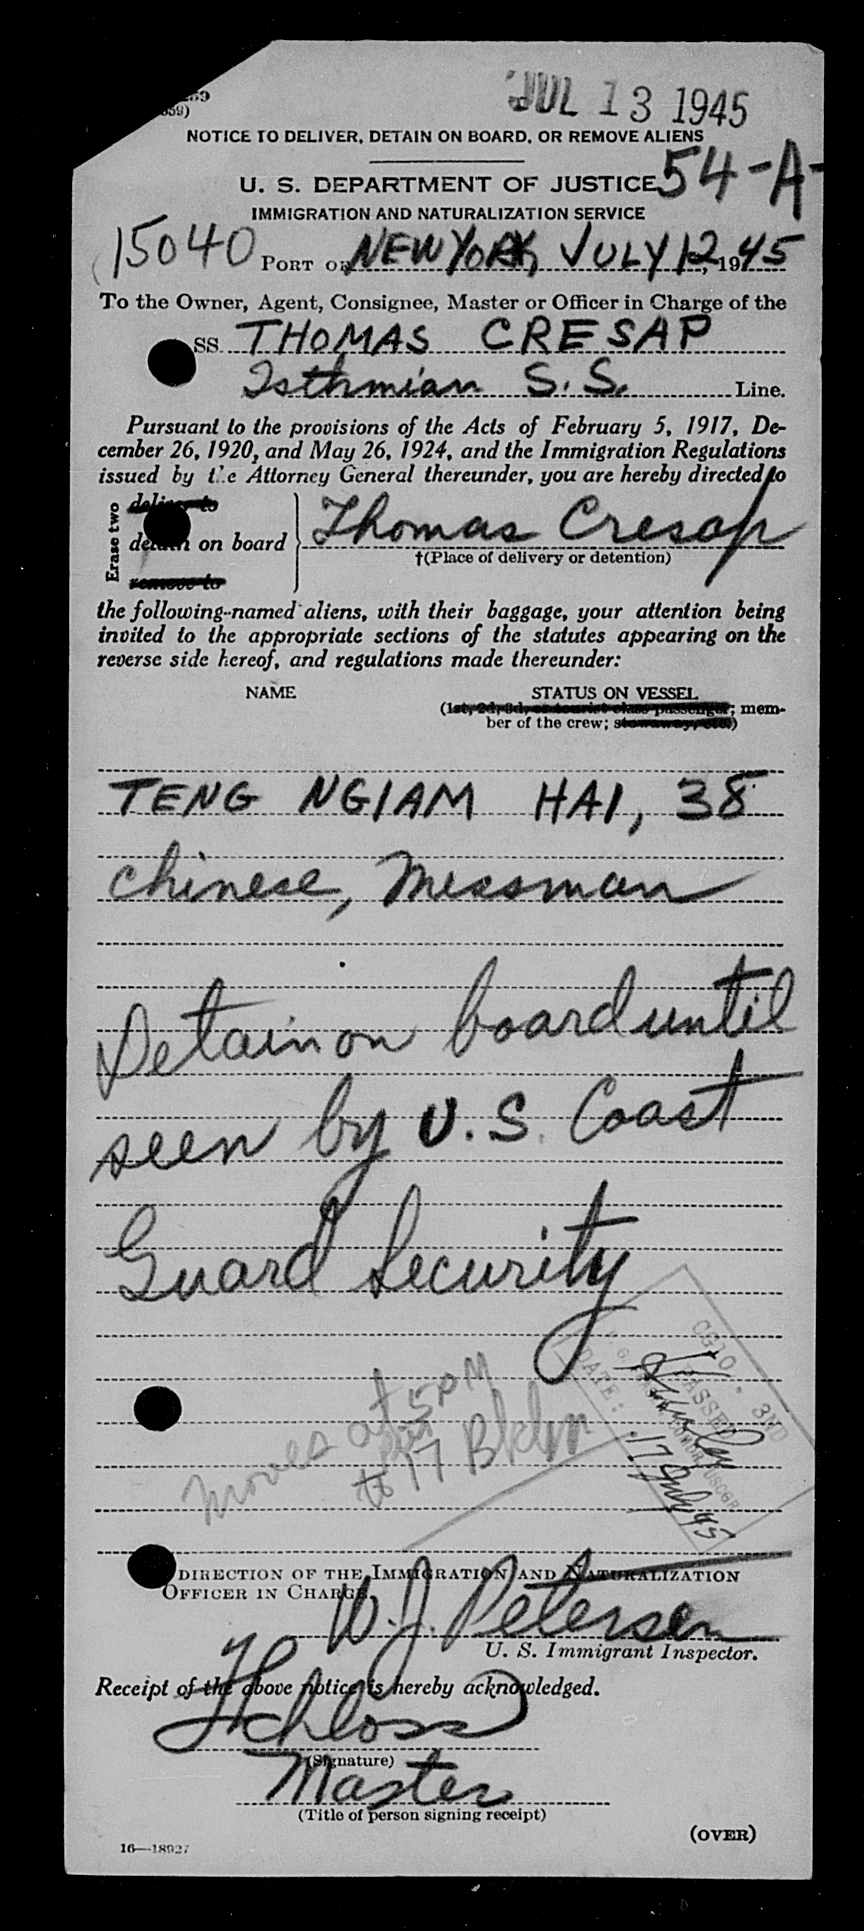 JUL 13 1945
NOTICE TO DELIVER, DETAIN ON BOARD, OR REMOVE ALIENS
U. S. DEPARTMENT OF JUSTICE 54-A-
IMMIGRATION AND NATURALIZATION SERVICE
15040 PORT OF NEW YORK, JULY 12, 1945
To the Owner, Agent, Consignee, Master or Officer in Charge of the
SS. THOMAS CRESAP
Isthmian S.S. Line.
Pursuant to the provisions of the Acts of February 5, 1917, De-
cember 26, 1920, and May 26, 1924, and the Immigration Regulations
issued by the Attorney General thereunder, you are hereby directed to
Erase two
deliver to
detain on board Thomas Cresap
†(Place of delivery or detention)
remove to
the following-named aliens, with their baggage, your attention being
invited to the appropriate sections of the statutes appearing on the
reverse side hereof, and regulations made thereunder:
NAME STATUS ON VESSEL
(1st, 2d, 3d, or tourist class passenger; mem-
ber of the crew; stowaway, etc.)
TENG NGIAM HAI, 38
Chinese, Messman
Detain on board until
seen by U.S. Coast
Guard Security
moves at 5 PM
to 17 Bklyn
CGIO - 3ND
PASSED
DATE: 17 July 45
DIRECTION OF THE IMMIGRATION AND NATURALIZATION
OFFICER IN CHARGE,
W. J. Petersen
U. S. Immigrant Inspector.
Receipt of the above notice is hereby acknowledged.
(Signature)
Master
(Title of person signing receipt)
(OVER)
16—18927